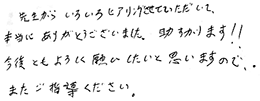 先生から いろいろヒアリングさせていただいて、
本当に ありがとうございました。助すかります!!
今後ともよろしく願いしたいと思いますので、
またご指導ください。